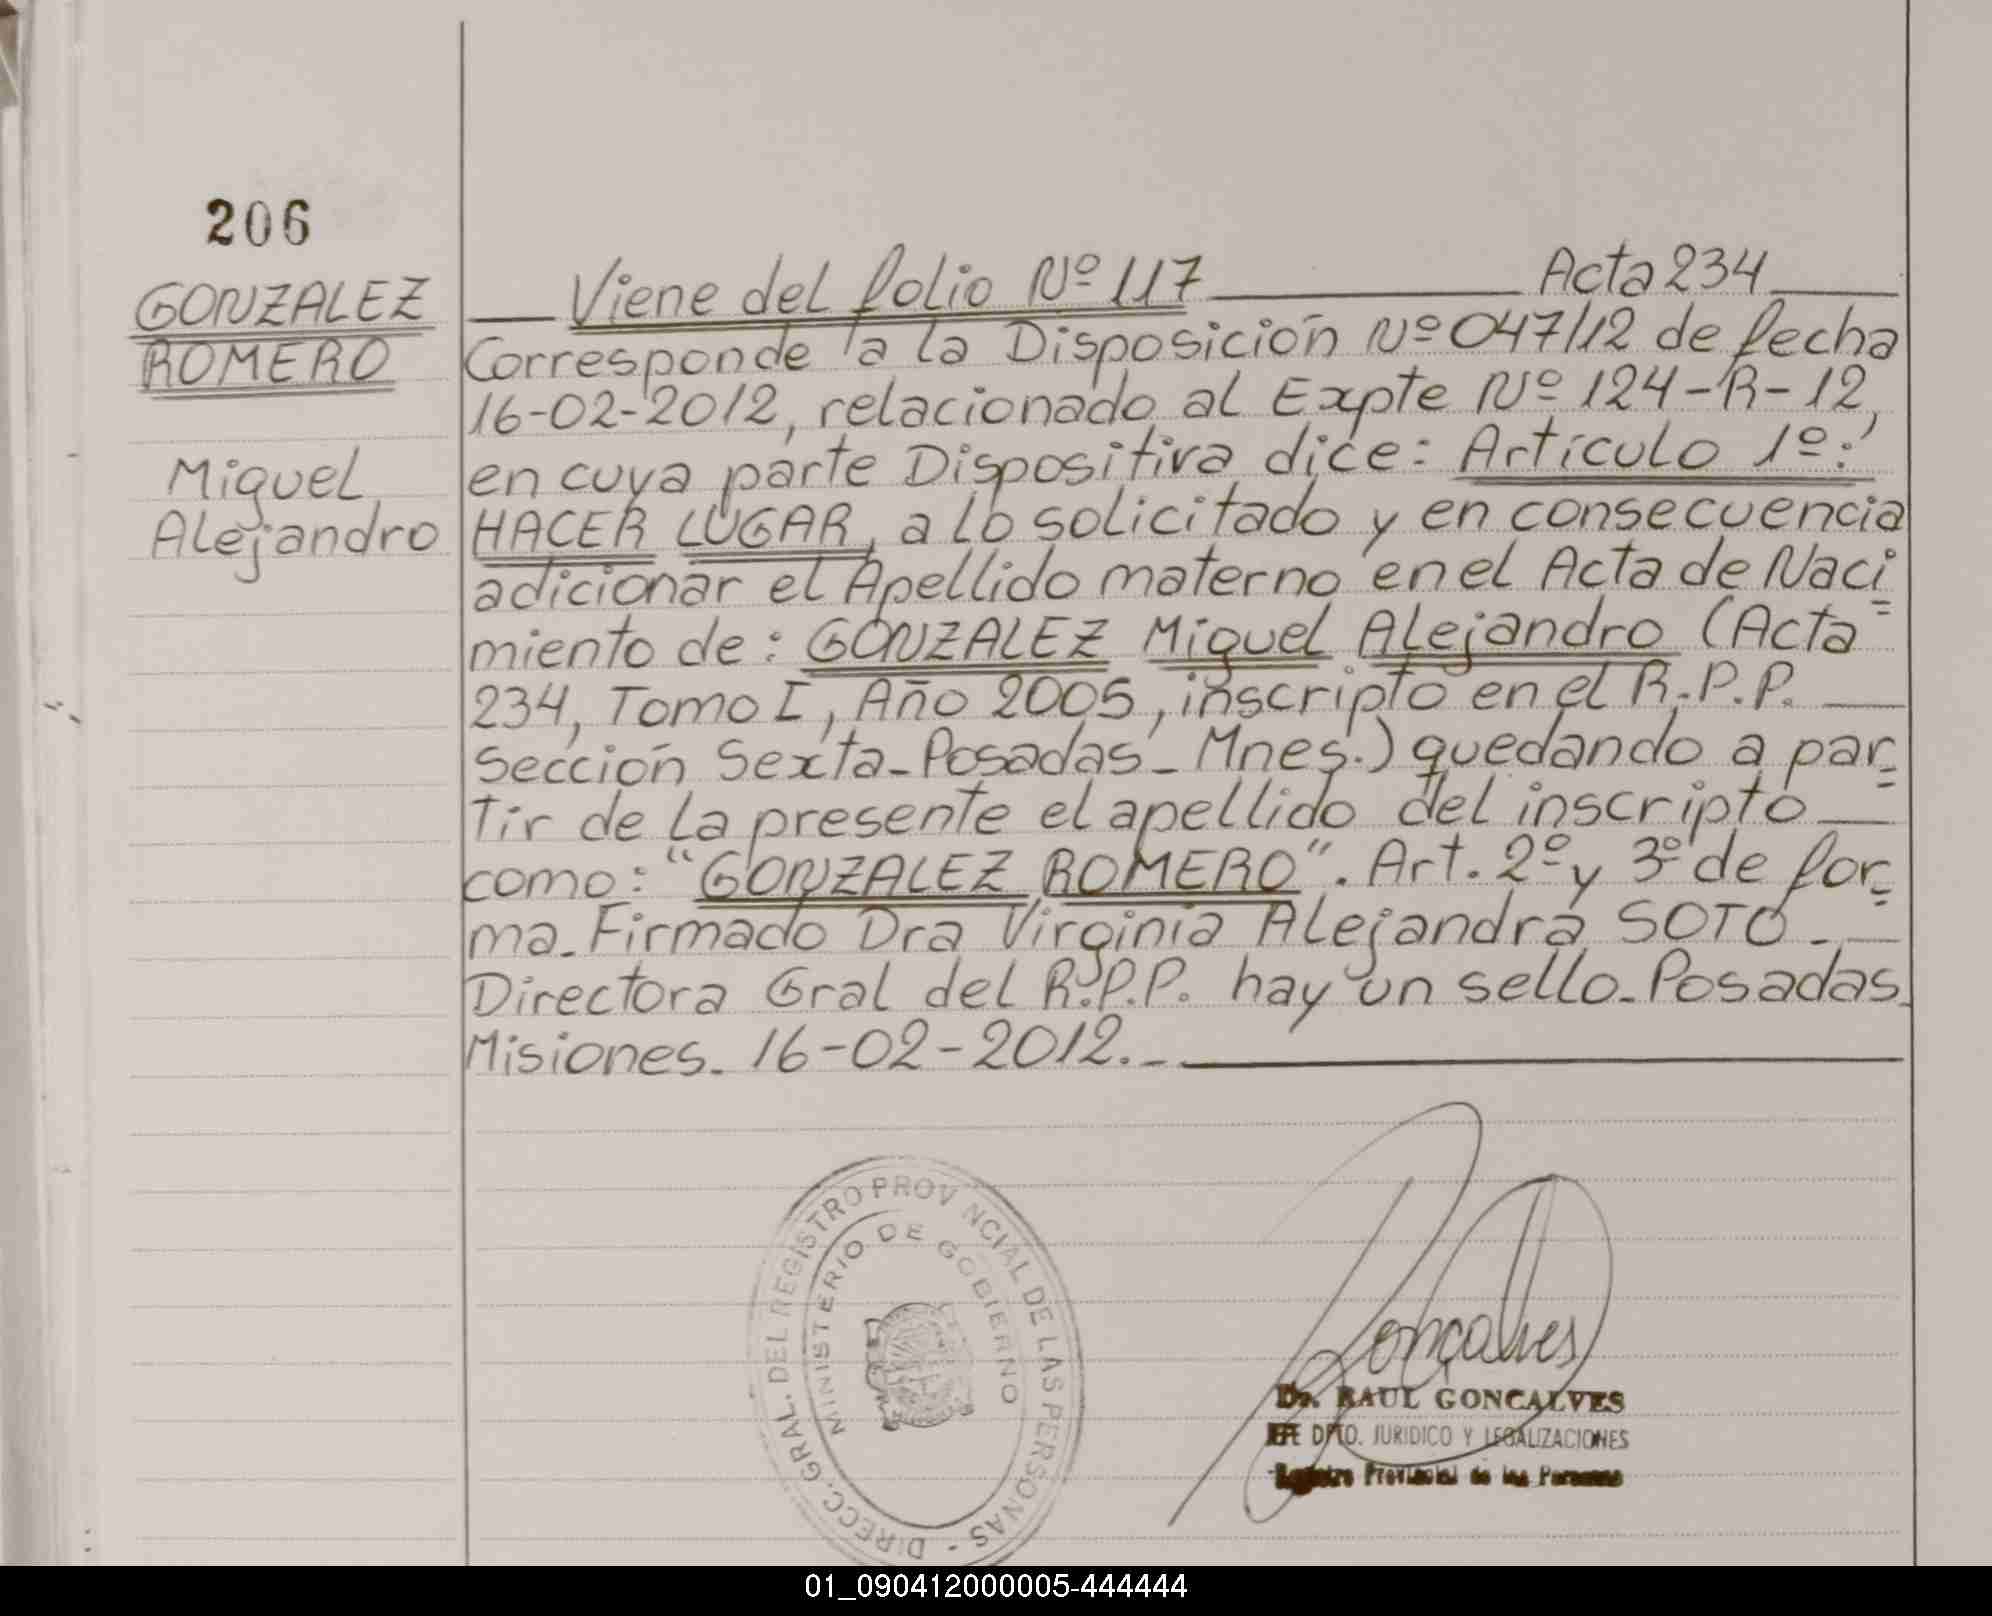 206
GONZALEZ
ROMERO
Miguel
Alejandro
Viene del folio Nº 117 Acta 234
Corresponde a la Disposición Nº 047/12 de fecha
16-02-2012, relacionado al Expte Nº 124-R-12,
en cuya parte Dispositiva dice: Artículo 1º:
HACER LUGAR, a lo solicitado y en consecuencia
adicionar el Apellido materno en el Acta de Naci=
miento de: GONZALEZ Miguel Alejandro (Acta
234, Tomo I, Año 2005, inscripto en el R.P.P.
Sección Sexta-Posadas-Mnes.) quedando a par=
tir de la presente el apellido del inscripto
como: "GONZALEZ ROMERO". Art. 2º y 3º de for=
ma. Firmado Dra Virginia Alejandra SOTO-
Directora Gral del R.P.P. hay un sello. Posadas.
Misiones. 16-02-2012.-
DIRECC. GRAL. DEL REGISTRO PROVINCIAL DE LAS PERSONAS -
MINISTERIO DE GOBIERNO
Gonçalves
Dr. RAUL GONCALVES
JEFE DPTO. JURIDICO Y LEGALIZACIONES
Registro Provincial de las Personas
01_090412000005-444444